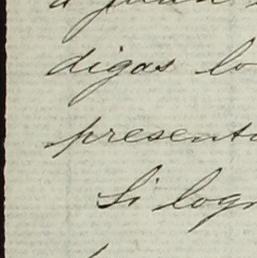 digas lo
present
Si logr